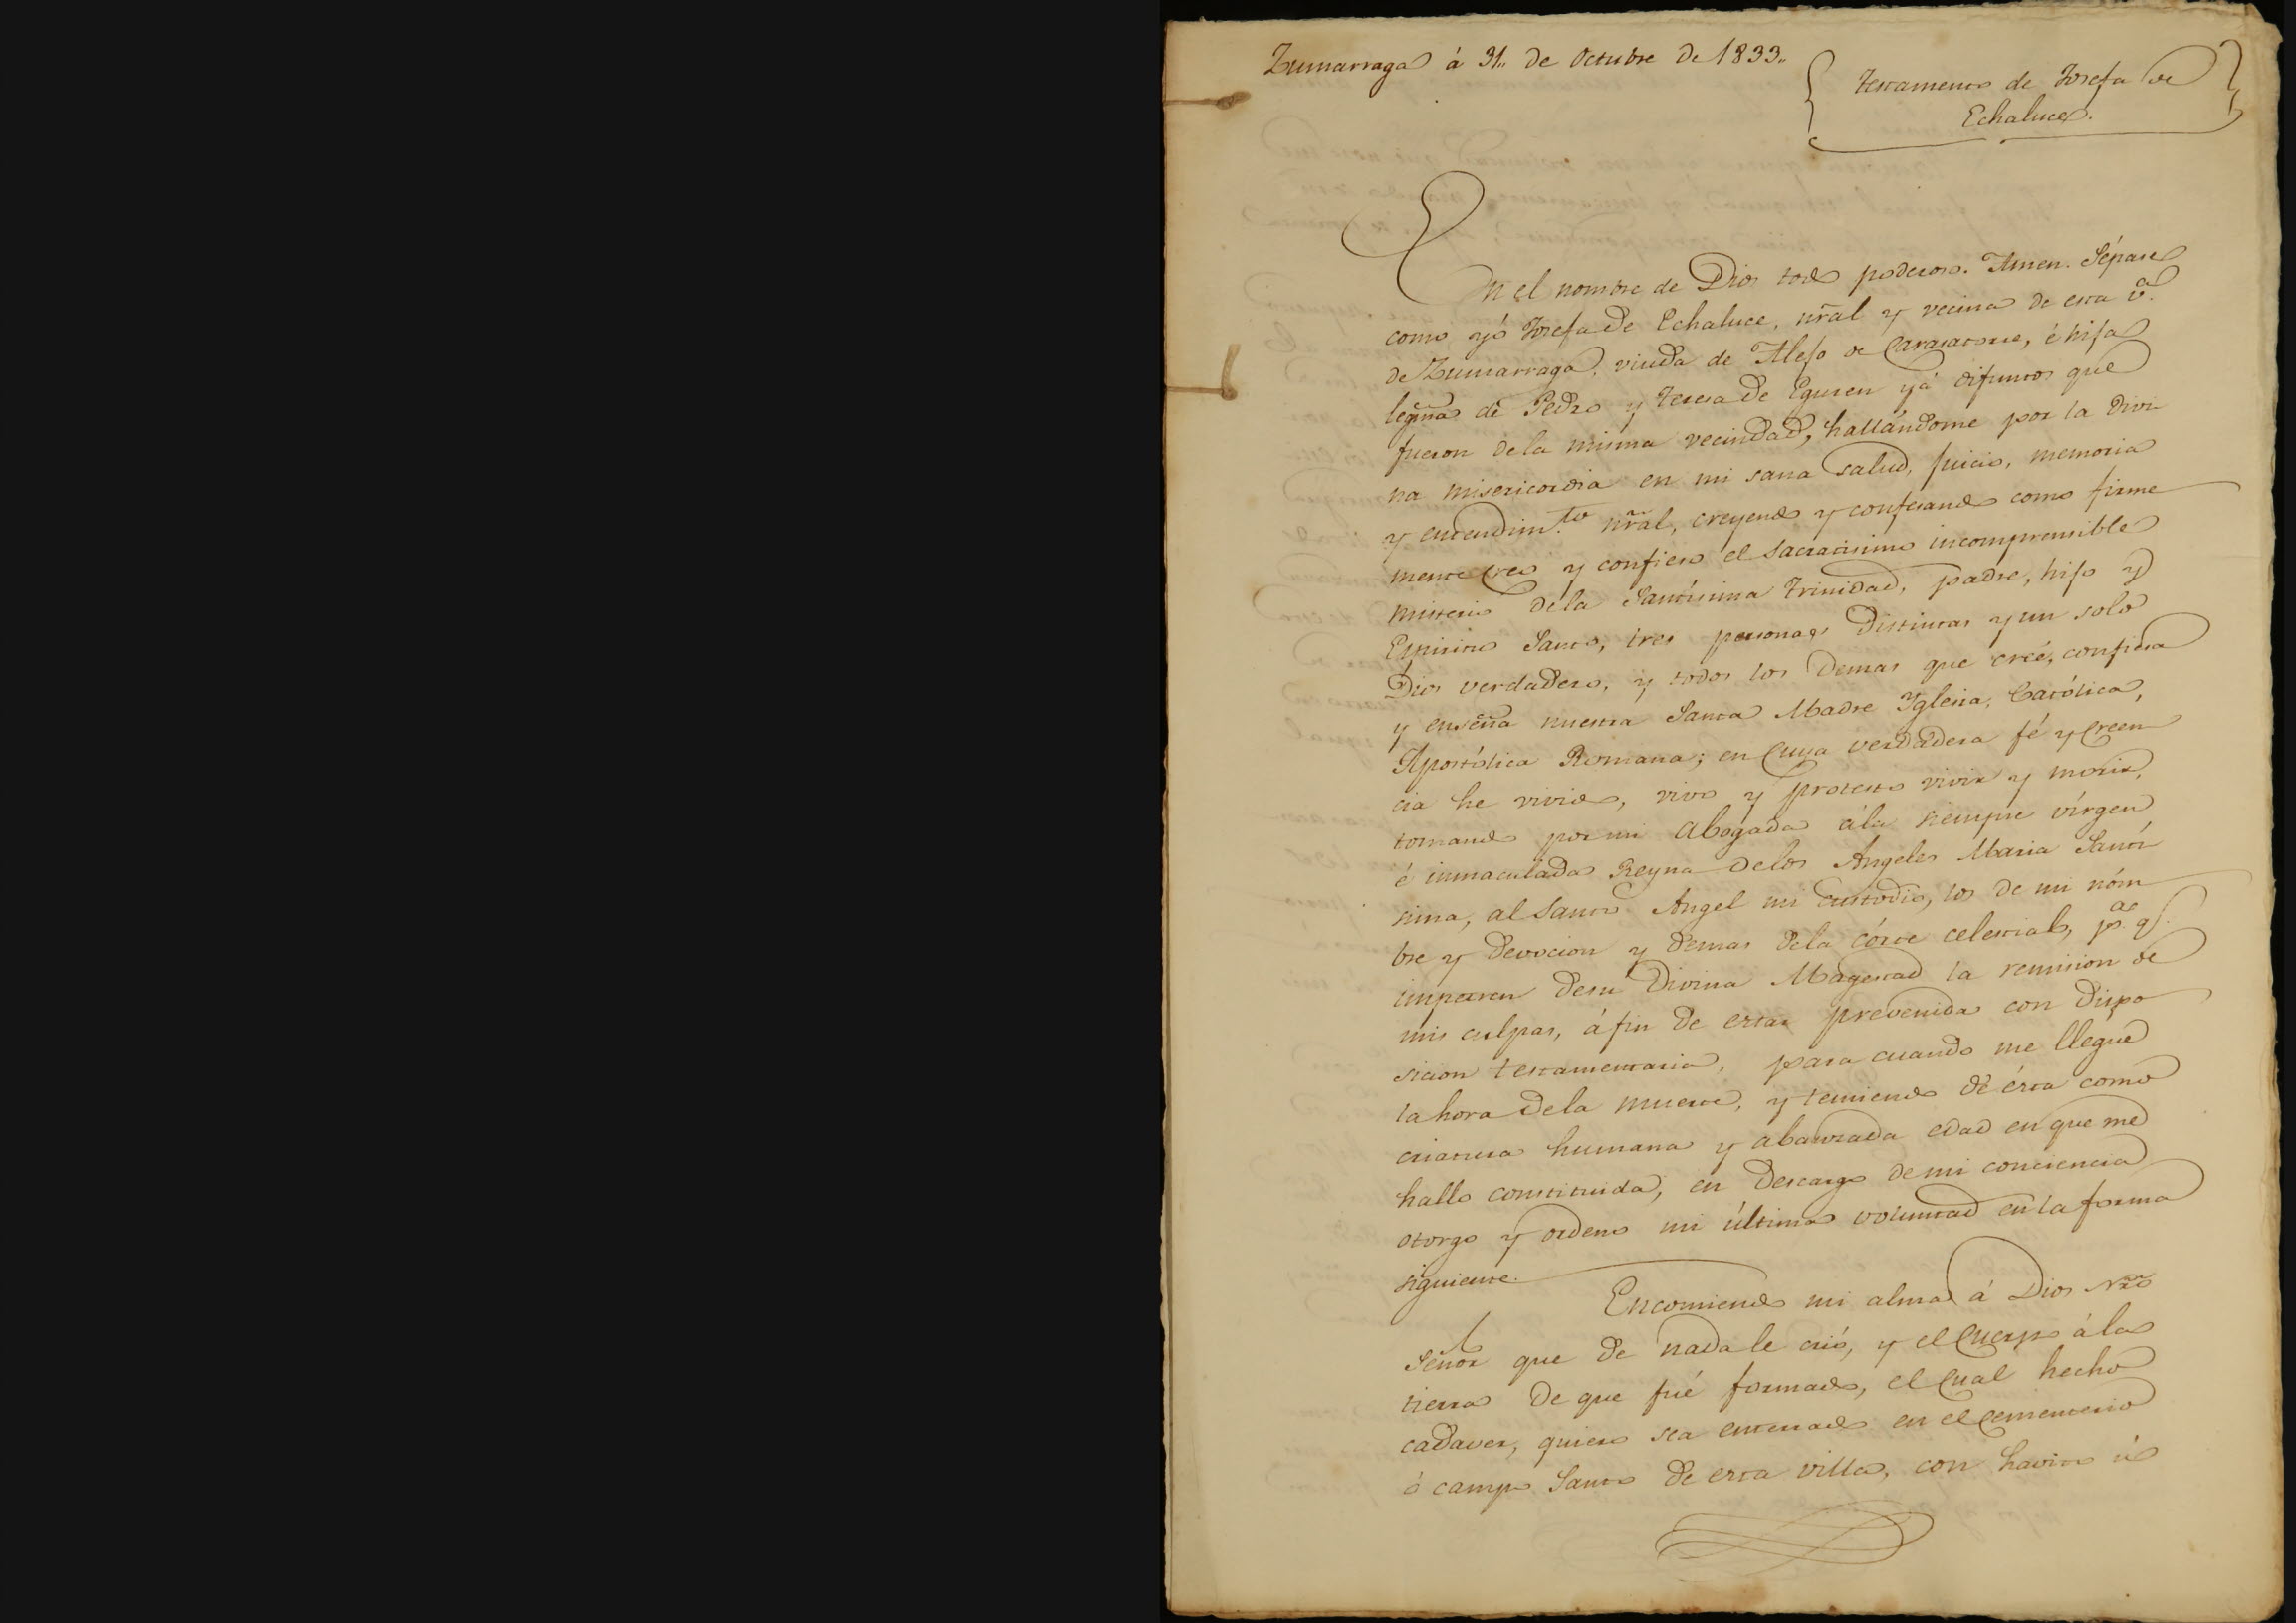 Zumarraga á 31,, de Octubre de 1833,,
Testamento de Josefa de
Echaluce.
En el nombre de Dios todo poderoso. Amen. Sépase
como yó Josefa de Echaluce, nr̃al y vecina de esta v.ª
de Zumarraga, viuda de Alejo de Carasatorre, é hija
legm̃a de Pedro y Teresa de Eguren yá difuntos que
fueron dela misma vecindad, hallándome por la Divi
na misericordia en mi sana salud, juicio, memoria
y entendim.to nr̃al, creyendo y confesando como firme
mente creo y confieso el Sacratisimo incomprensible
misterio dela Santísima Trinidad, padre, hijo y
Espiritu Santo, tres personas distintas y un solo
Dios verdadero, y todos los demas que creé, confiesa
y enseña nuestra Santa Madre Yglesia, Católica,
Apostólica Romana; en cuya verdadera fé y creen
cia he vivido, vivo y protesto vivir y morir,
tomando por mi abogada ála siempre vírgen
é inmaculada Reyna delos Angeles Maria Santí
sima, al Santo Angel mi Custodio, los de mi nóm
bre y devocion y demas dela córte celestial, p.ª q.e
impetren desu Divina Magestad la remision de
mis culpas, áfin de estar prevenida con dispo
sicion testamentaria, para cuando me llegue
la hora dela muerte, y temiendo de ésta como
criatura humana y abanzada edad en que me
hallo constituida, en descargo de mi conciencia
otorgo y ordeno mi última voluntad en la forma
siguiente.
Encomiendo mi alma á Dios Nr̃o
Señor que de nada le crió, y el cuerpo ála
tierra de que fué formado, el cual hecho
cadaver, quiero sea enterrado en el Cementerio
ó campo Santo de esta villa, con havito ú